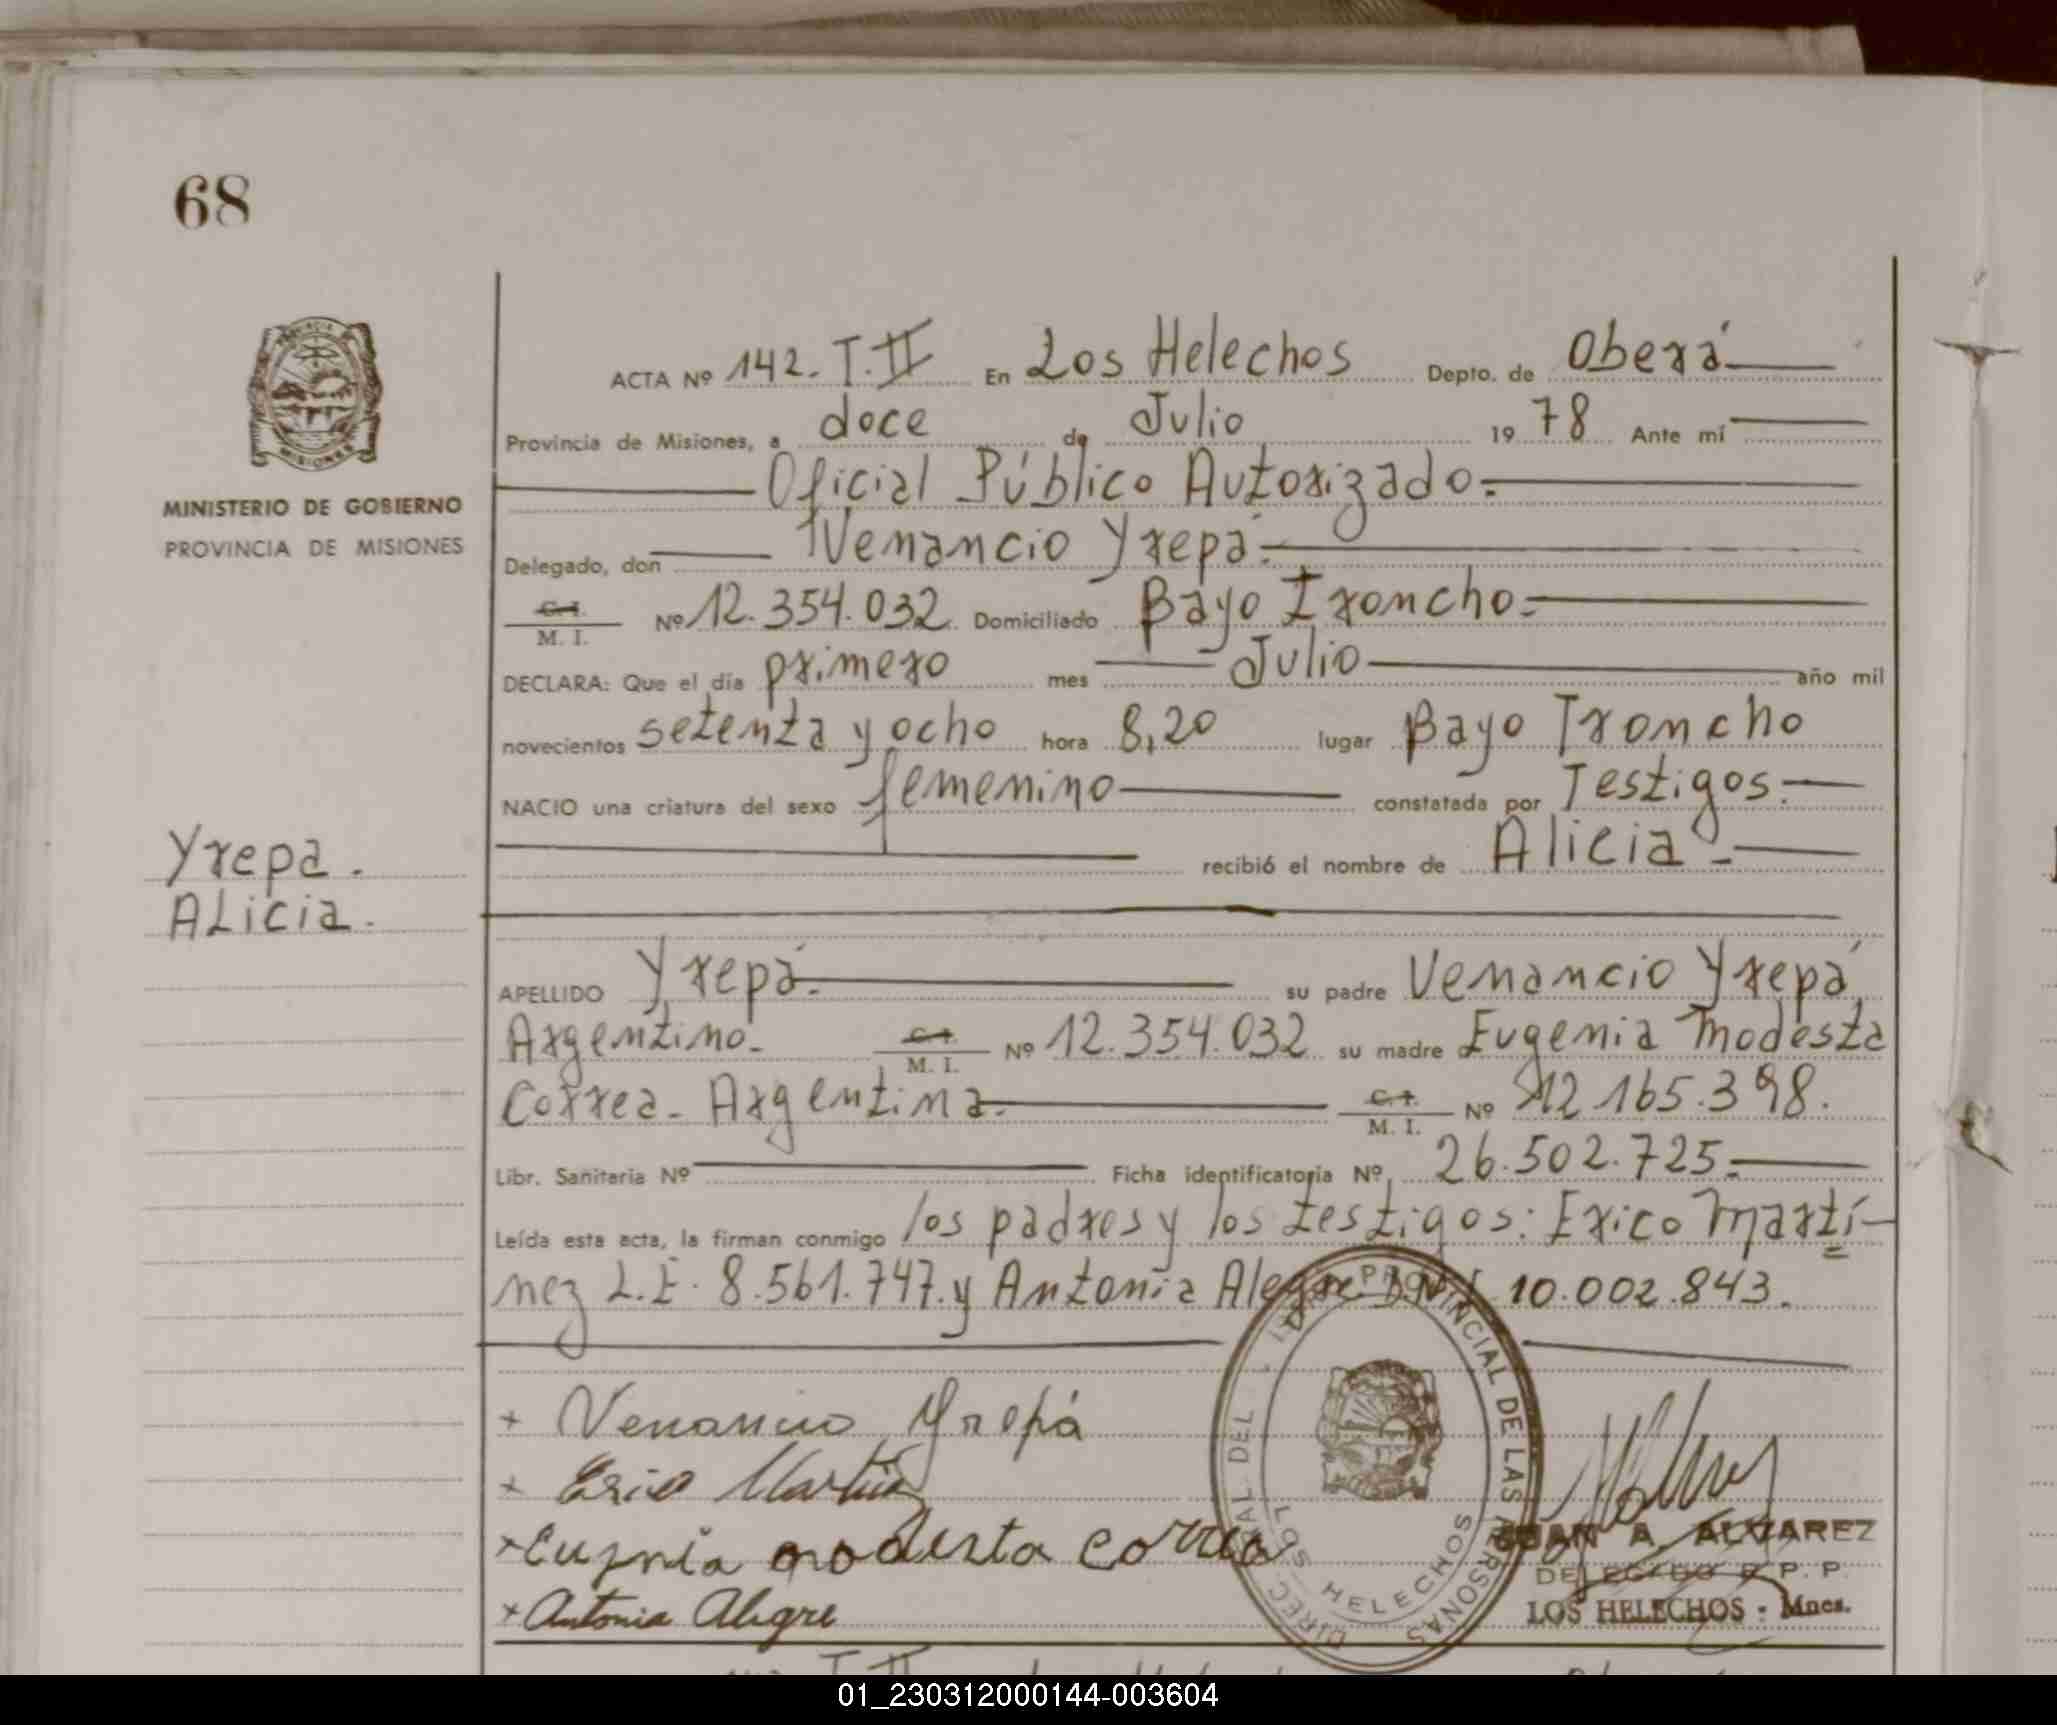 68
MINISTERIO DE GOBIERNO
PROVINCIA DE MISIONES
ACTA Nº 142. T. II En Los Helechos Depto. de Oberá
Provincia de Misiones, a doce de Julio 1978 Ante mí
Oficial Público Autorizado.
Delegado, don Venancio Yrepá.
C. I.
M. I. Nº 12.354.032 Domiciliado Bayo Troncho.
DECLARA: Que el día primero mes Julio año mil
novecientos setenta y ocho hora 8,20 lugar Bayo Troncho
NACIO una criatura del sexo femenino constatada por Testigos.
recibió el nombre de Alicia.
Yrepa.
ALicia.
APELLIDO Yrepá. su padre Venancio Yrepá
Argentino. C. I. M. I. Nº 12.354.032 su madre Eugenia Modesta
Correa. Argentina. C. I. M. I. Nº 12.165.398.
Libr. Sanitaria Nº Ficha identificatoria Nº 26.502.725.
Leída esta acta, la firman conmigo los padres y los testigos: Erico Martí-
nez L.E. 8.561.747. y Antonia Alegre D.N.I. 10.002.843.
+ Venancio Yrepá
+ Erico Martinez
+ Eugenia modesta correa
+ Antonia Alegre
PROVINCIAL DE LAS PERSONAS
LOS HELECHOS
JUAN A. ALVAREZ
DELEGADO R. P. P.
LOS HELECHOS - Mnes.
01_230312000144-003604